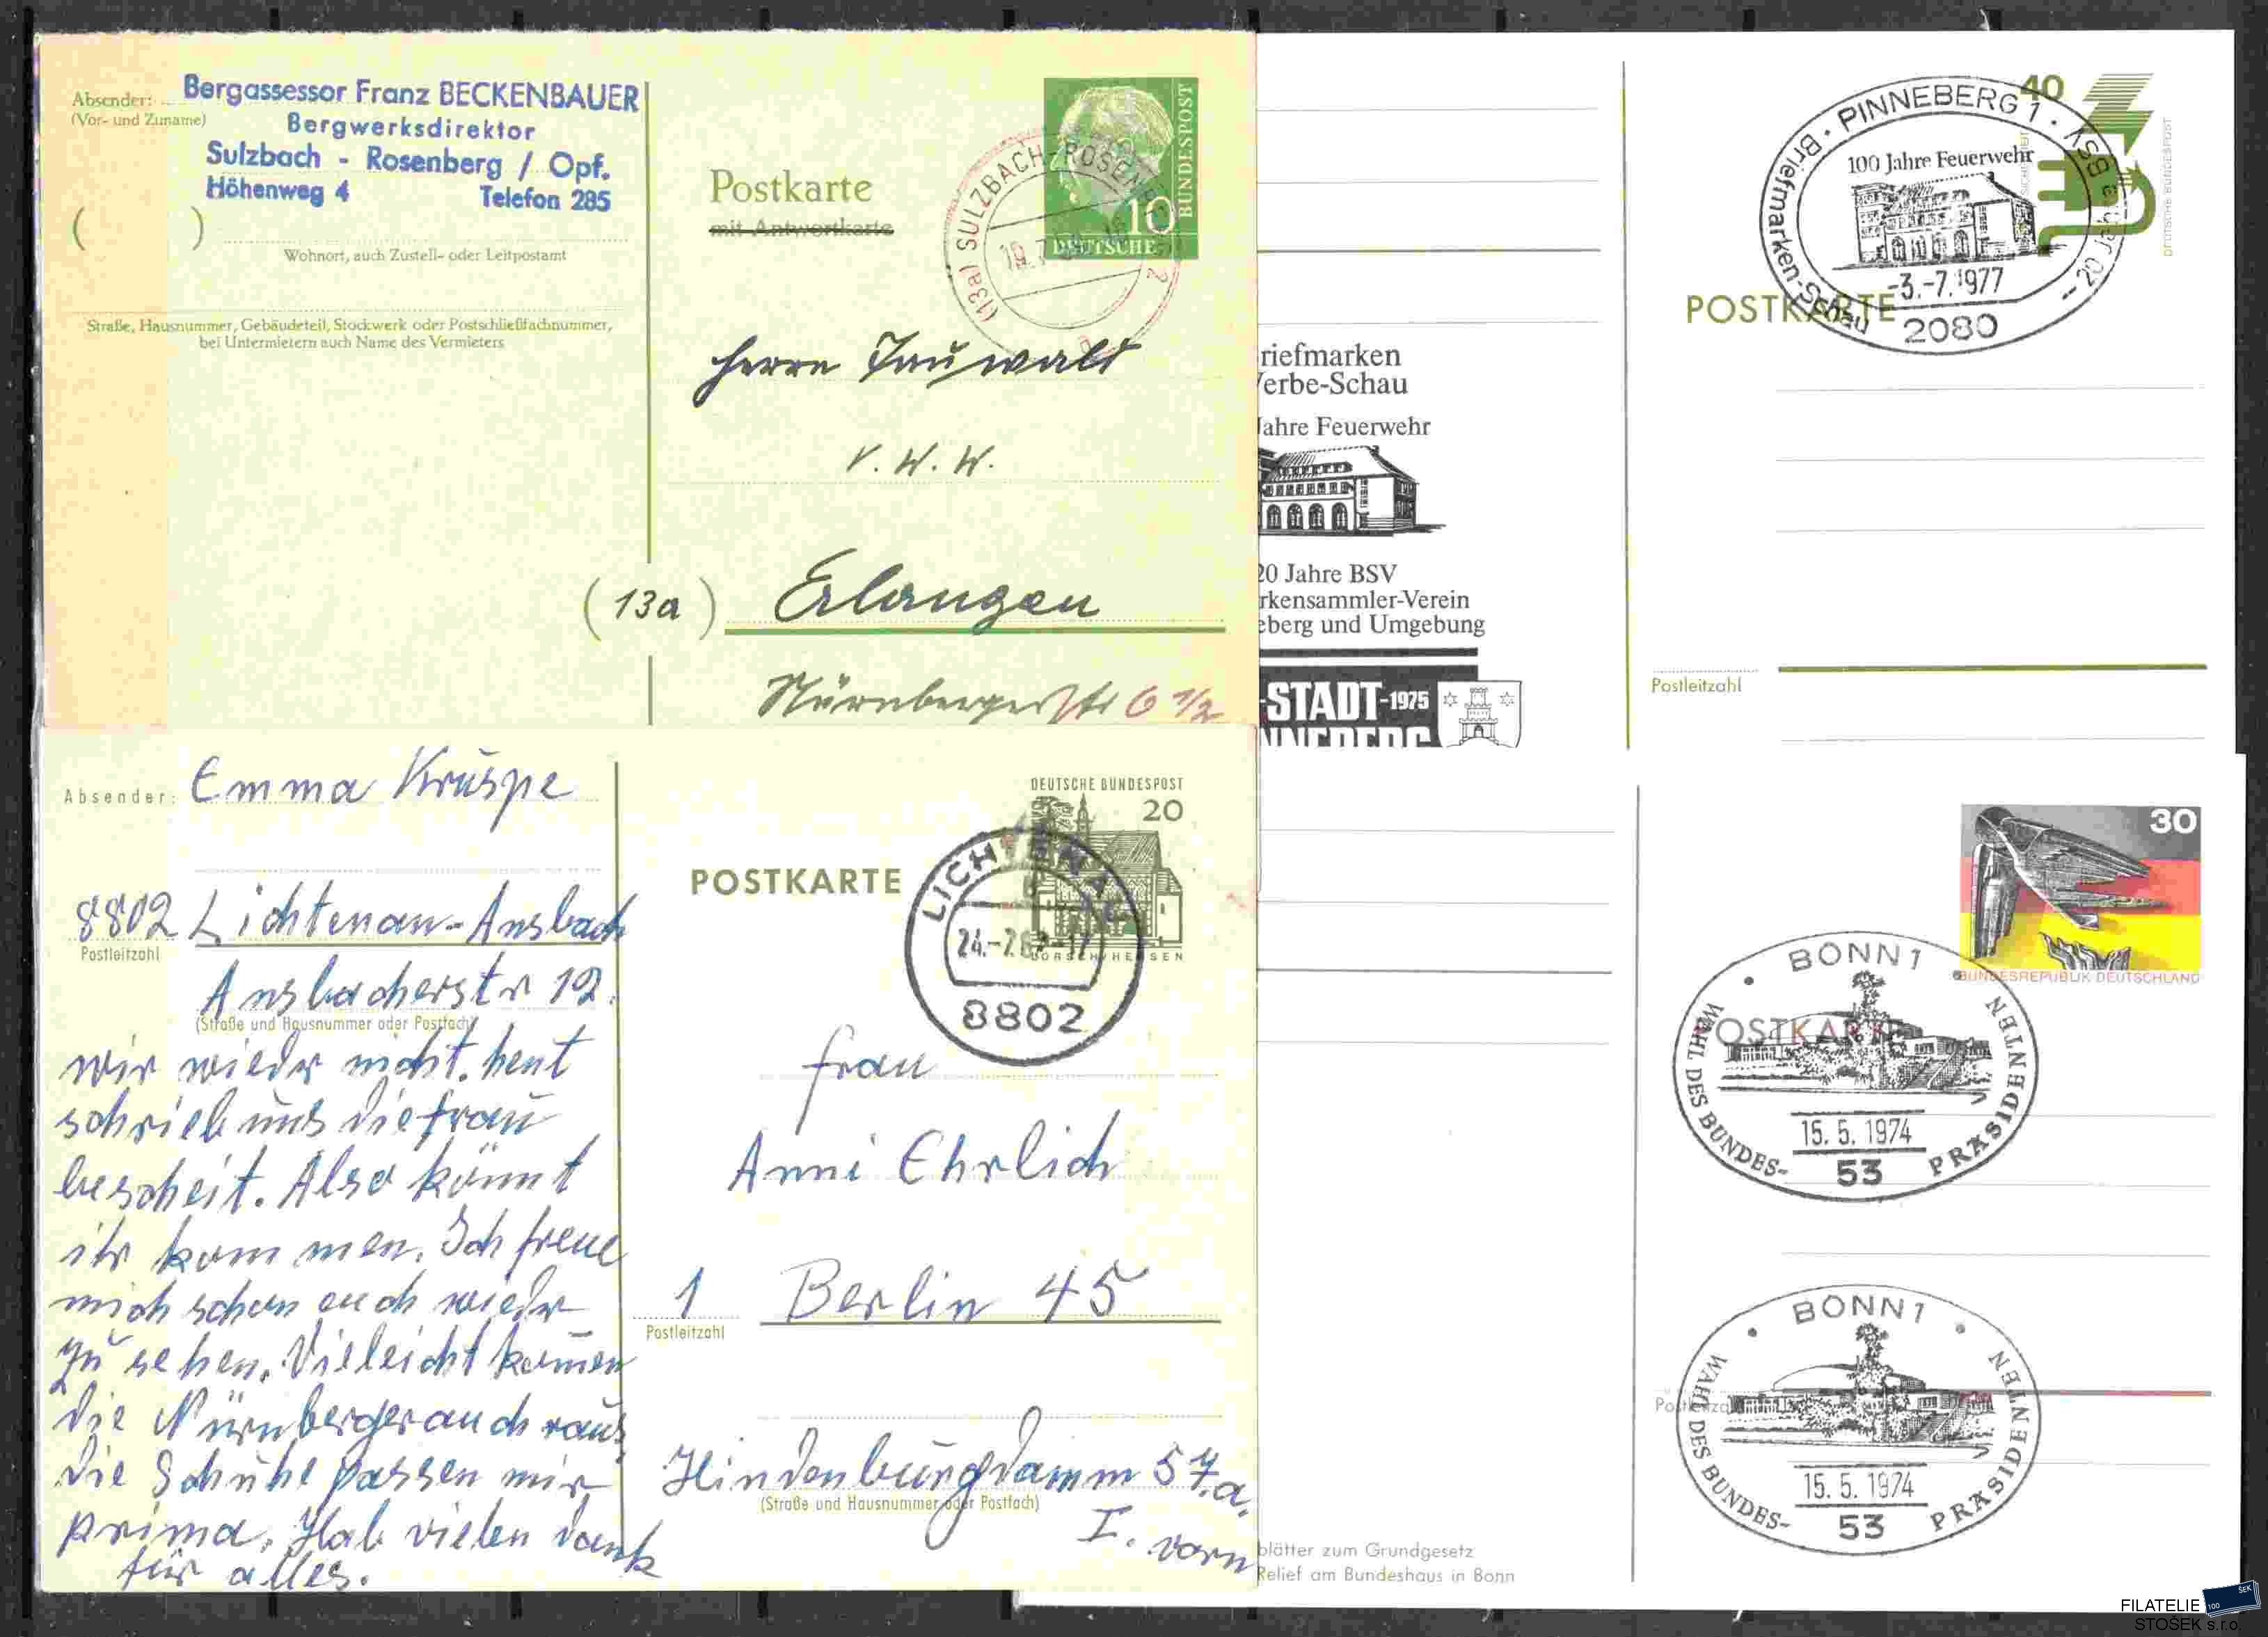 Absender:
(Vor- und Zuname)
Bergassessor Franz BECKENBAUER
Bergwerksdirektor
Sulzbach - Rosenberg / Opf.
Höhenweg 4 Telefon 285
( )
Wohnort, auch Zustell- oder Leitpostamt
Straße, Hausnummer, Gebäudeteil, Stockwerk oder Postschließfachnummer,
bei Untermietern auch Name des Vermieters
Postkarte
mit Antwortkarte
10
DEUTSCHE
BUNDESPOST
(13a) SULZBACH-ROSENB
19.7
Herrn
V. W. W.
(13a) Erlangen
Nürnberger Str 6 1/2
riefmarken
erbe-Schau
Jahre Feuerwehr
20 Jahre BSV
rkensammler-Verein
eberg und Umgebung
-STADT-1975
NNEBERG
40
DEUTSCHE BUNDESPOST
POSTKARTE
Briefmarken-Schau · PINNEBERG 1 · 20 Jahre BSV
100 Jahre Feuerwehr
-3.-7.1977
2080
Postleitzahl
Absender: Emma Kruspe
8802 Lichtenau-Ansbach
Postleitzahl
Ansbacherstr 12.
(Straße und Hausnummer oder Postfach)
wir wieder nicht. heut
schrieb uns die frau
bescheit. Also könnt
ihr kommen. Ich freue
mich schon euch wieder
zu sehen. Vieleicht kommen
die Nürnberger auch raus.
die Schuhe passen mir
prima. Hab vielen dank
für alles.
DEUTSCHE BUNDESPOST
20
LORSCH/HESSEN
POSTKARTE
LICHTENAU
24.-7.67-17
8802
frau
Anni Ehrlich
1 Berlin 45
Postleitzahl
Hindenburgdamm 57.a.
(Straße und Hausnummer oder Postfach)
I. vorn
30
BUNDESREPUBLIK DEUTSCHLAND
POSTKARTE
BONN 1
WAHL DES BUNDES-PRÄSIDENTEN
15. 5. 1974
53
Postleitzahl
BONN 1
WAHL DES BUNDES-PRÄSIDENTEN
15. 5. 1974
53
blätter zum Grundgesetz
Relief am Bundeshaus in Bonn
FILATELIE
STOŠEK s.r.o.
100
ŠEK